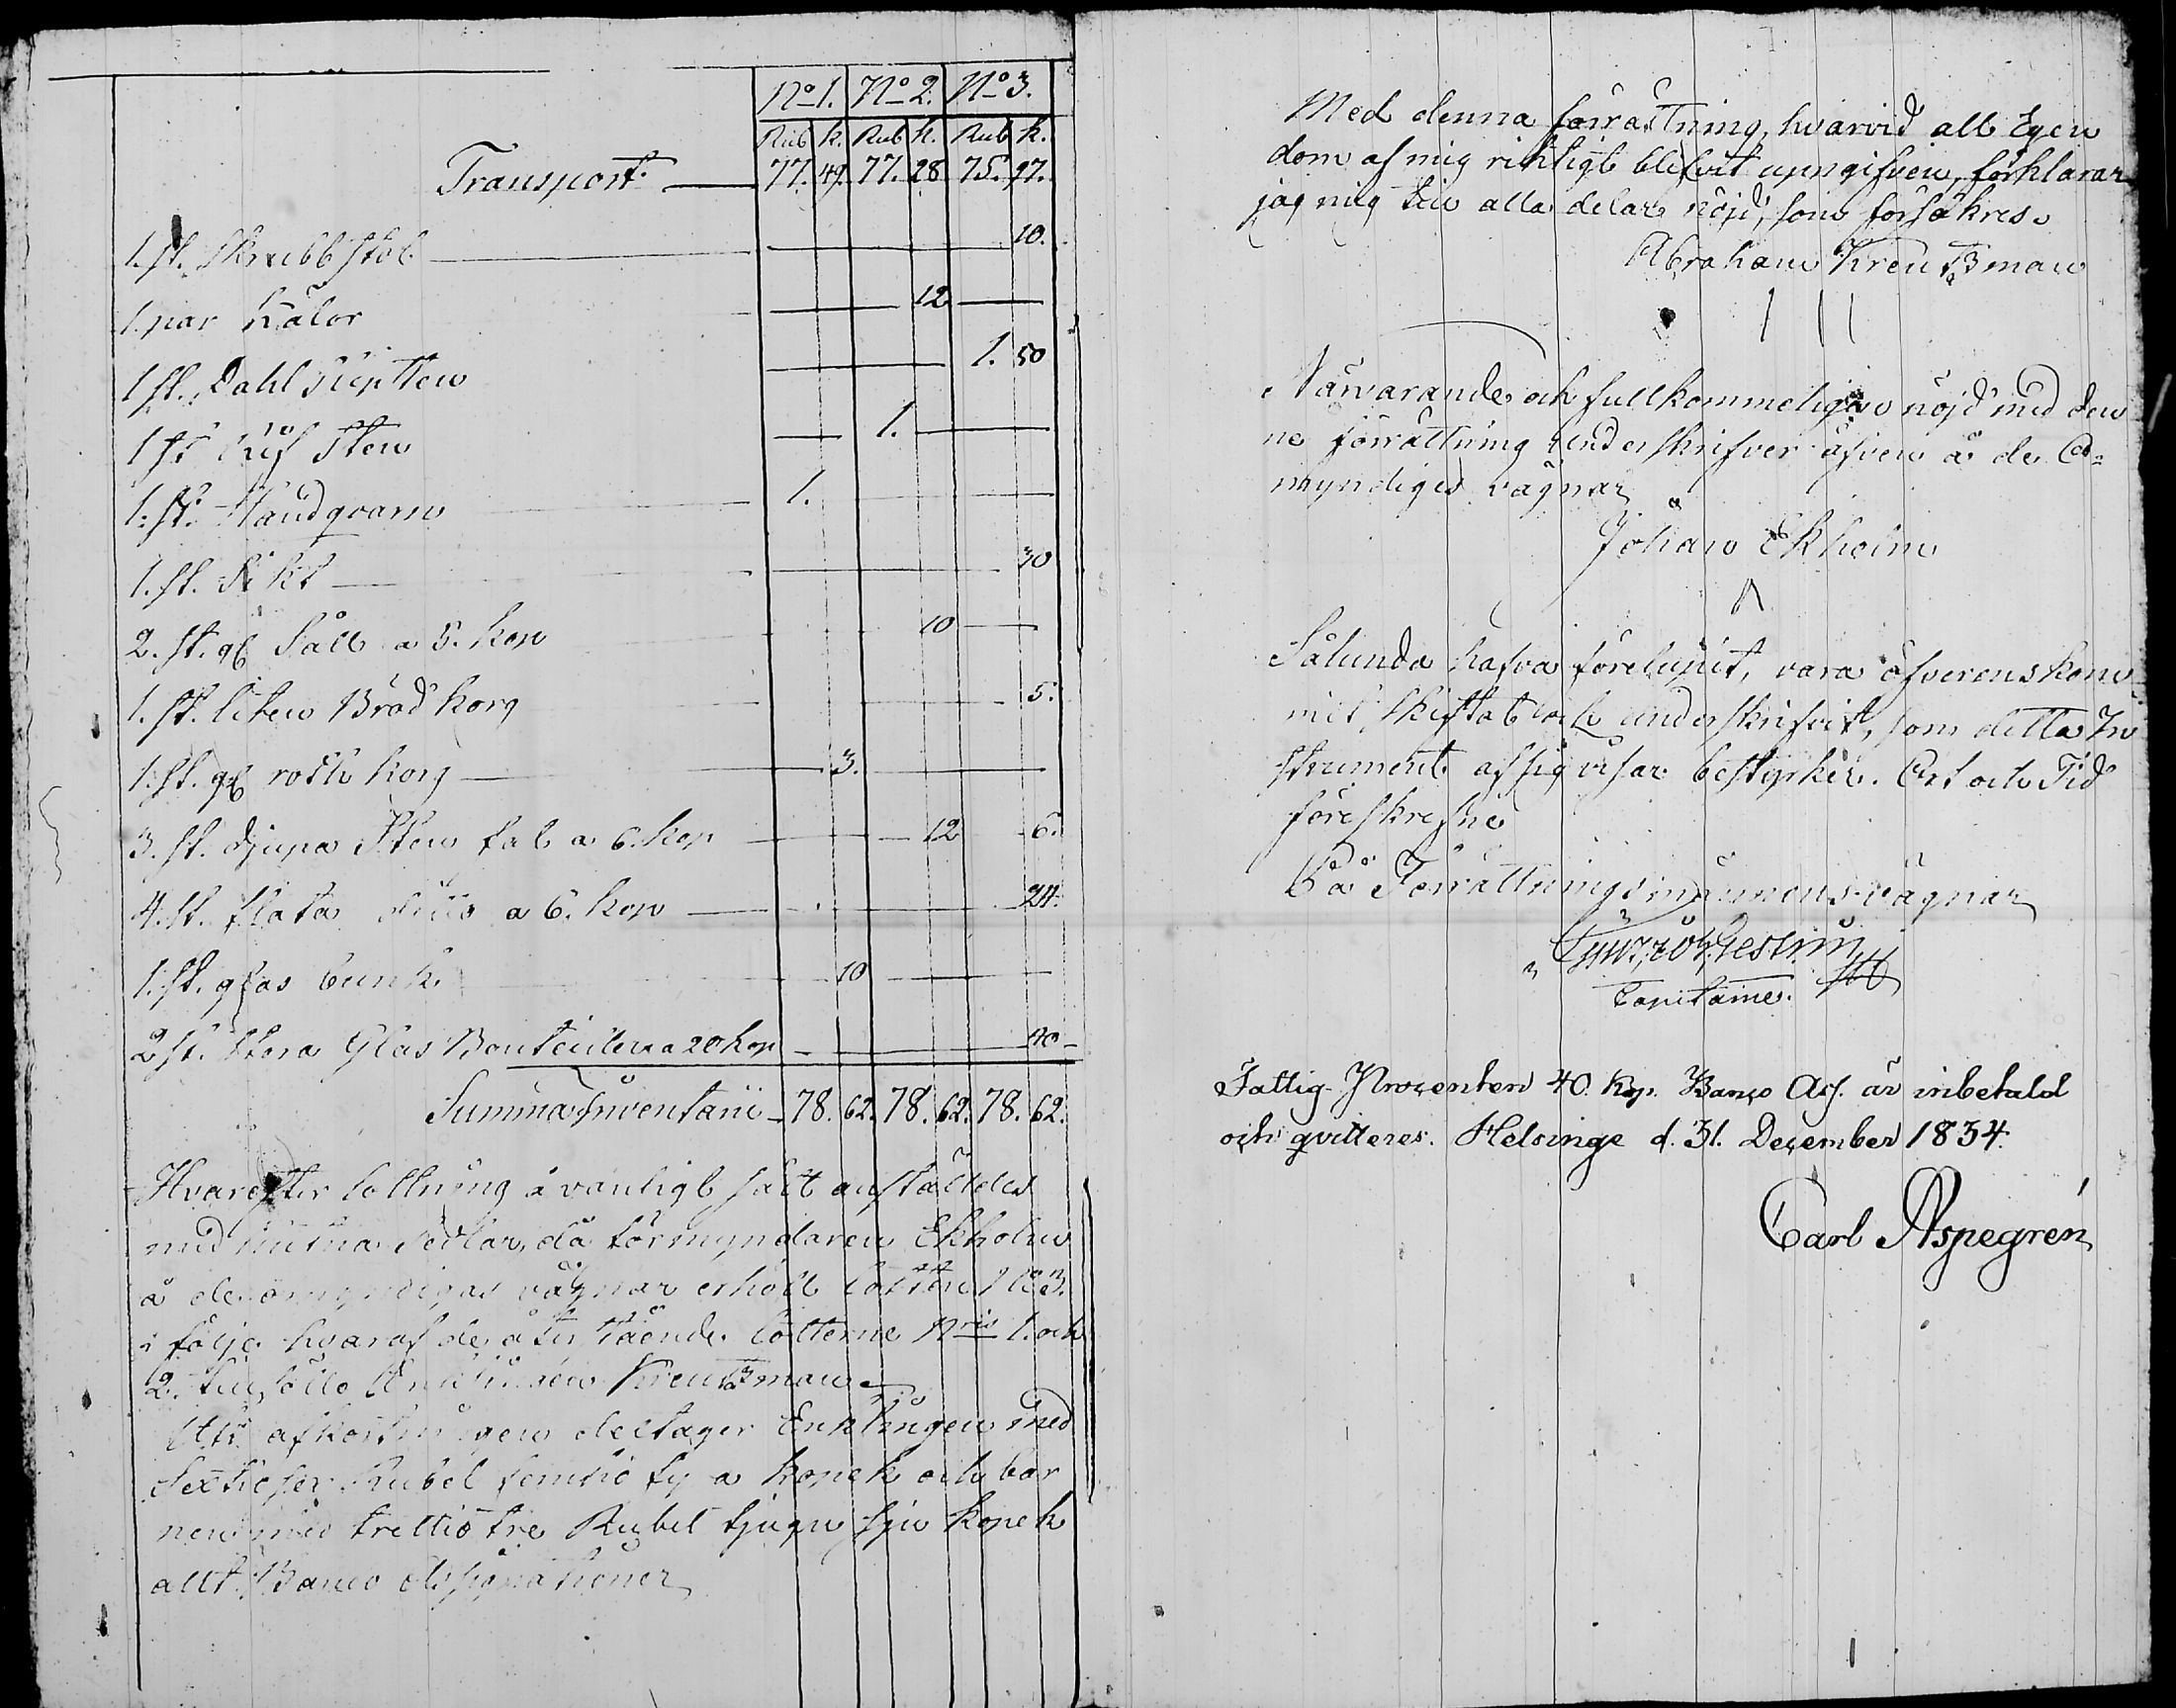 No 1. No 2. No 3.
Rub k. Rub k. Rub k.
Transport 77. 49. 77. 28 75. 97.
1. st. Skrubbstol 10.
1. par Kälor 12
1 st. Dahl 1. 50
1 st 1.
1. st. Handqvarn 1.
1. st. Sikt 30
2. st. gl Såll a 5. kop 10
1. st. liten Bröd korg 5.
1. st. gl korg 3.
3. st. djupa Sten fat a 6. kop 12 6.
4. st. flata ditto a 6. kop 24.
1. st. glas bunk 10
2 st. stora Glas Bouteiller a 20 kop 40
Summa Inventarii 78. 62. 78. 62. 78. 62.
Hvarefter lottning å vanligt sätt anstäldes
med sedlar, då förmyndaren Ekholm
å de omyndigas vägnar erhöll lotten N 3.
i följe hvaraf de återstående lotterne Nris 1. och
2. tillföllo Enklingen Kreutzman
Uti afkortningen deltager Enklingen med
Sextiosex Rubel femtio fyra kopek och bar
nen med trettiotre Rubel tjugu sju kopek
allt Banco Assignationer
Med denna förrättning, hvarvid all Egen
dom af mig riktigt blifvit uppgifven, förklarar
jag mig till alla delar nöjd, som försäkres
Abraham Kreutzman
Närvarande och fullkommeligen nöjd med den
ne förrättning underskrifver äfven å de O=
myndiges vägnar
Johan Ekholm
Sålunda hafva förelupit, vara öfverenskom
mit, skiftat och underskrifvit, som detta In
strument af sig visar bestyrker. Ort och Tid
föreskrefne
På Förrättningsmännens vägnar
Capitaine.
Fattig Procenten 40. Kop. Banco Ass. är inbetald
och qvitteres. Helsinge d. 31. December 1834.
Carl Aspegrén